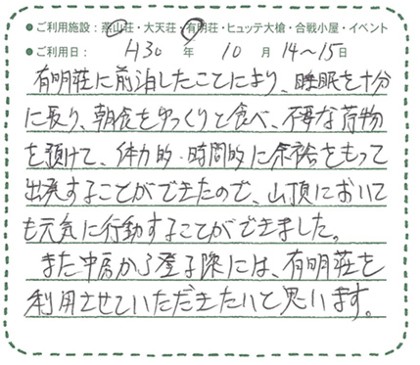 ●ご利用施設：燕山荘・大天荘・有明荘・ヒュッテ大槍・合戦小屋・イベント
●ご利用日： H30 年 10 月 14〜15日
有明荘に前泊したことにより、睡眠を十分
に長り、朝食をゆっくりと食べ、不要な荷物
を預けて、体力的・時間的に余裕をもって
出発することができたので、山頂において
も元気に行動することができました。
また中房から登る際には、有明荘を
利用させていただきたいと思います。